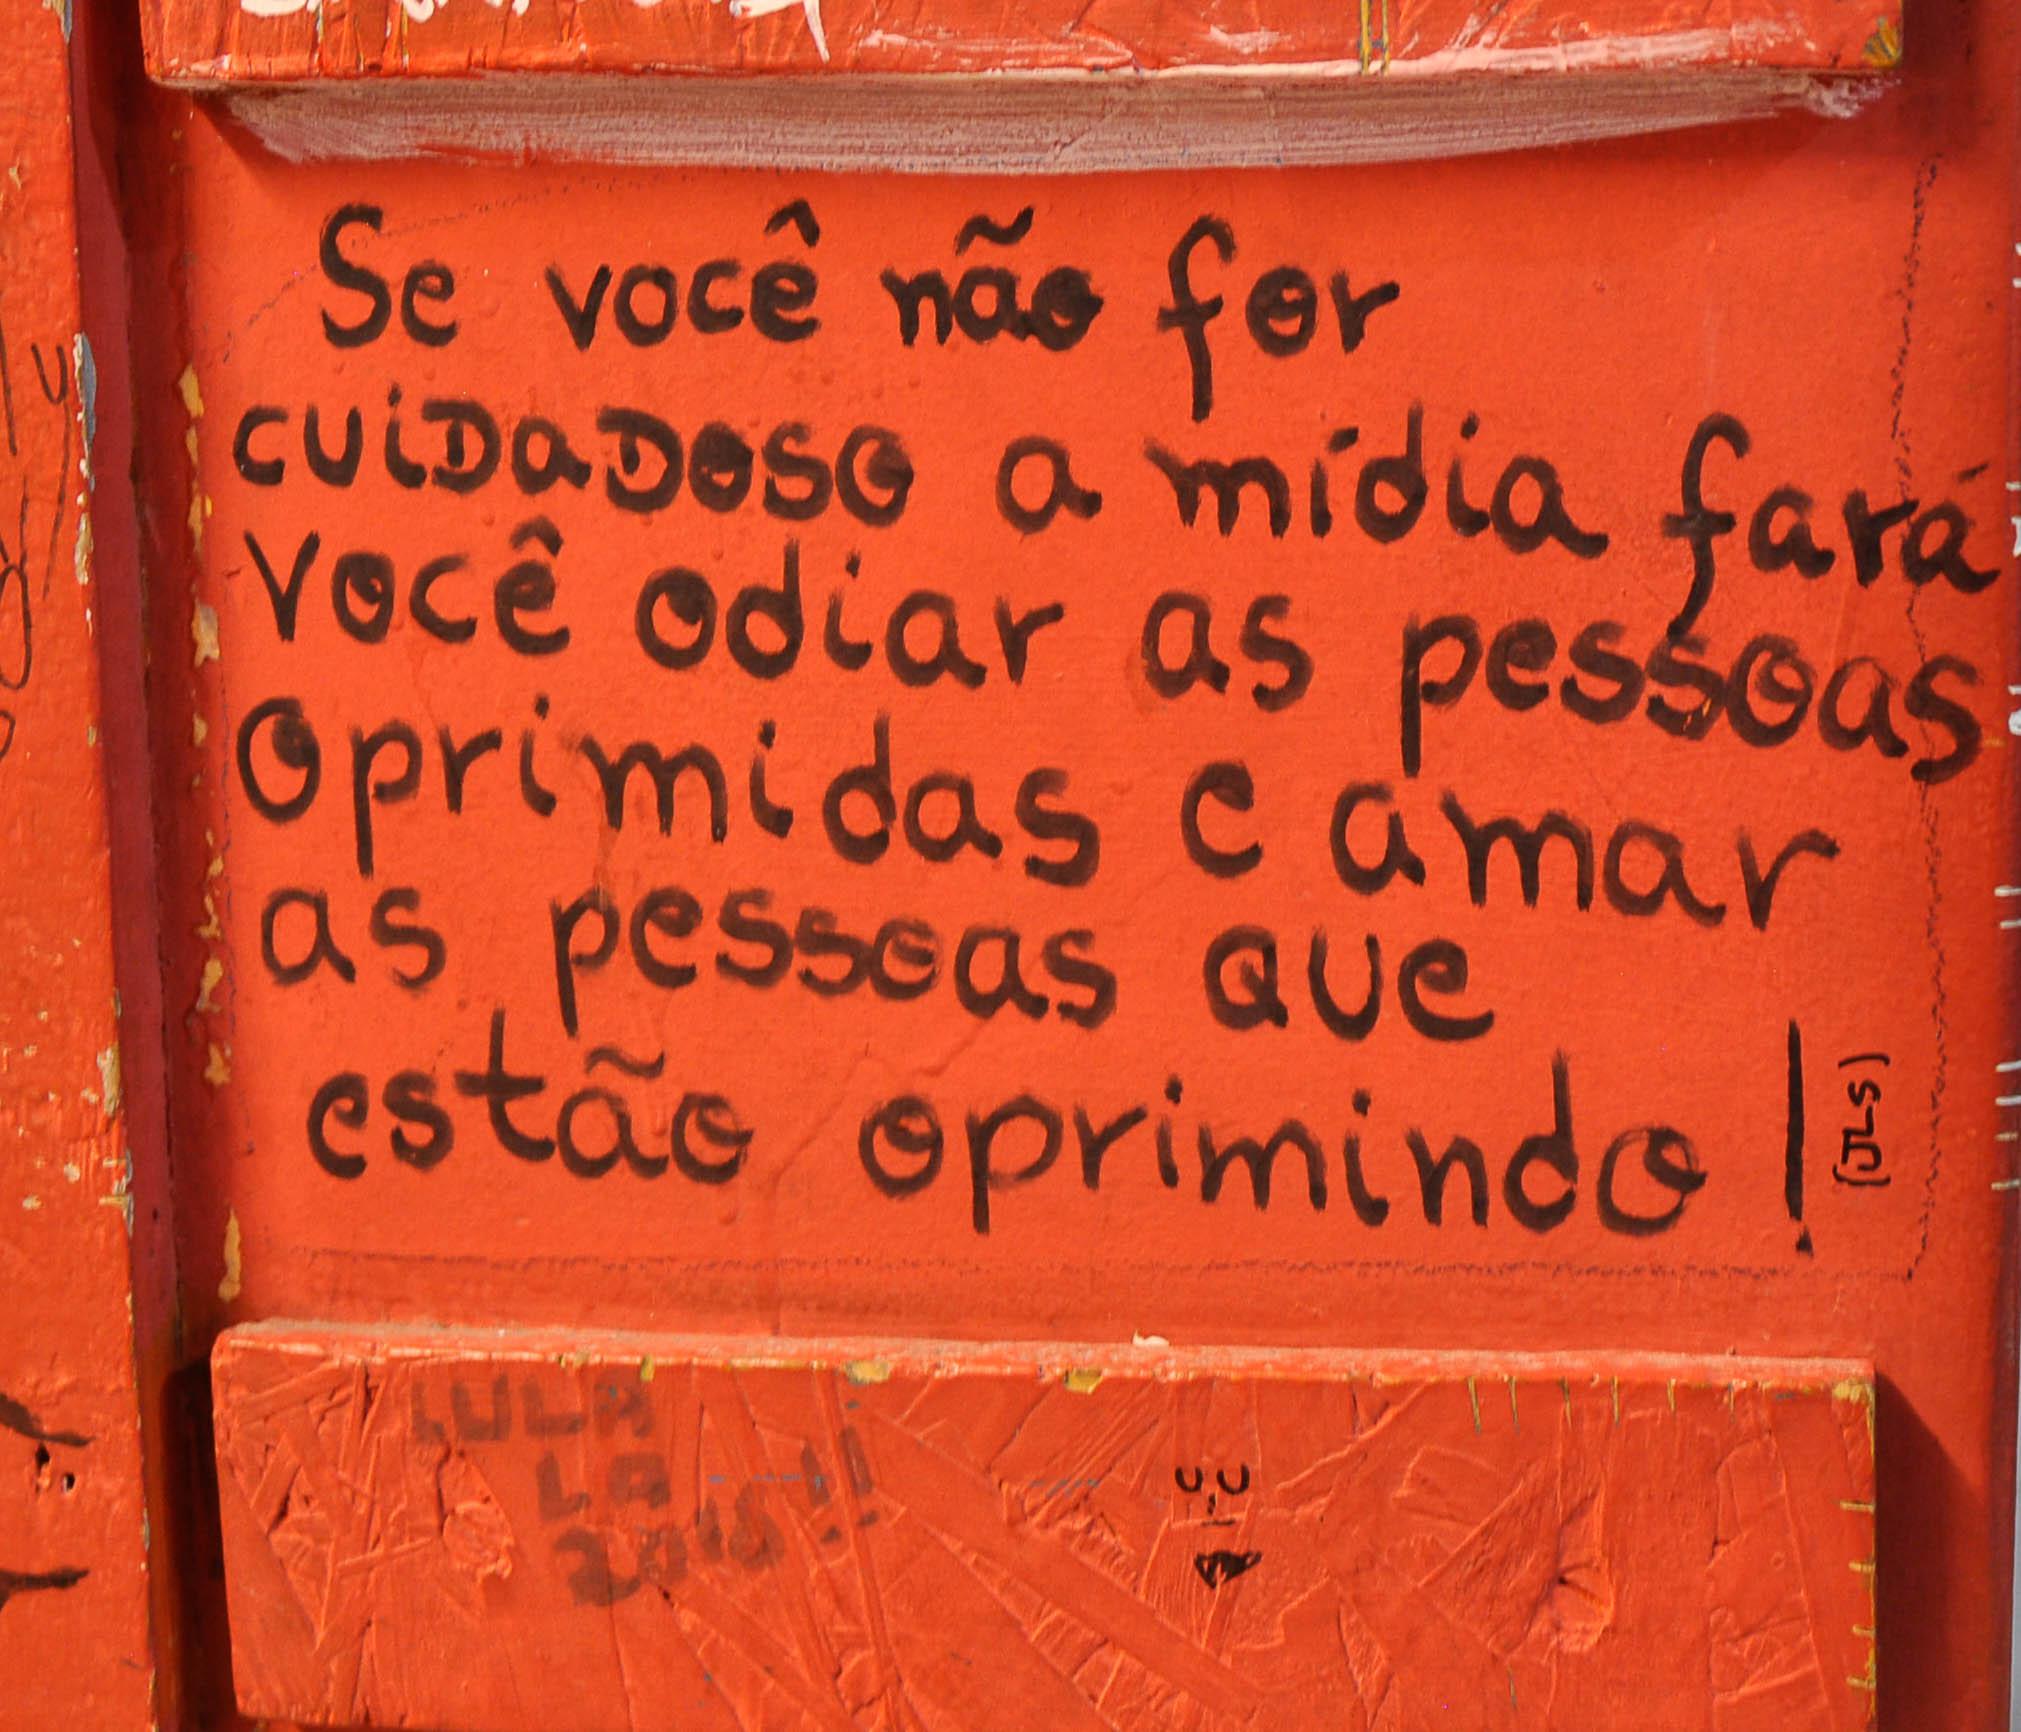 Se você não for
cuiDaDoso a mídia fará
Você odiar as pessoas
oprimidas e amar
as pessoas que
estão oprimindo!
(JLS)
LULA
LA